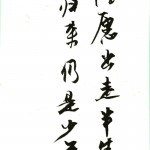 愿出走半生
归来仍是少